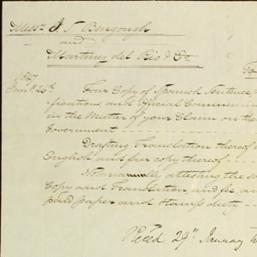 Messrs J. S. Bengough
and
Martinez del Rio & Co
Four Copy of Spanish Sentence
fications and Official Commun
in the Matter of your Claim on the
Government
Drafting Translation thereof
English and fair copy thereof
attesting the
Copy and Translation, and
paid paper and stamp duty
29th January